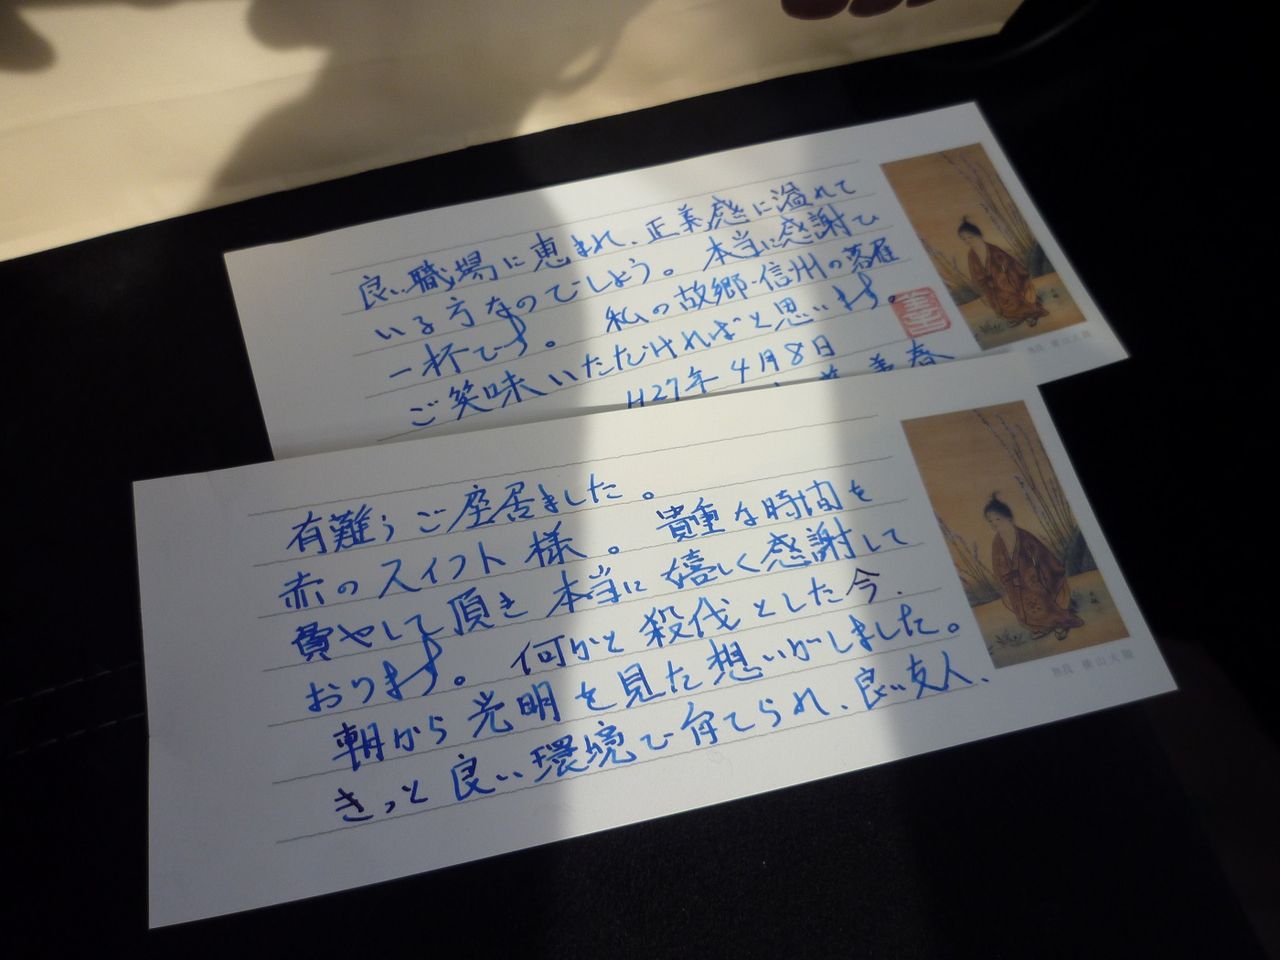 有難うご座居ました。
赤のスイフト様。貴重な時間を
費やして頂き本当に嬉しく感謝して
おります。何かと殺伐とした今、
朝から光明を見た想いがしました。
きっと良い環境で育てられ、良い友人、
無我 横山大観
良い職場に恵まれ、正義感に溢れて
いる方なのでしょう。本当に感謝で
一杯です。私の故郷・信州の落雁
ご笑味いただければと思います。
H27年4月8日
美春